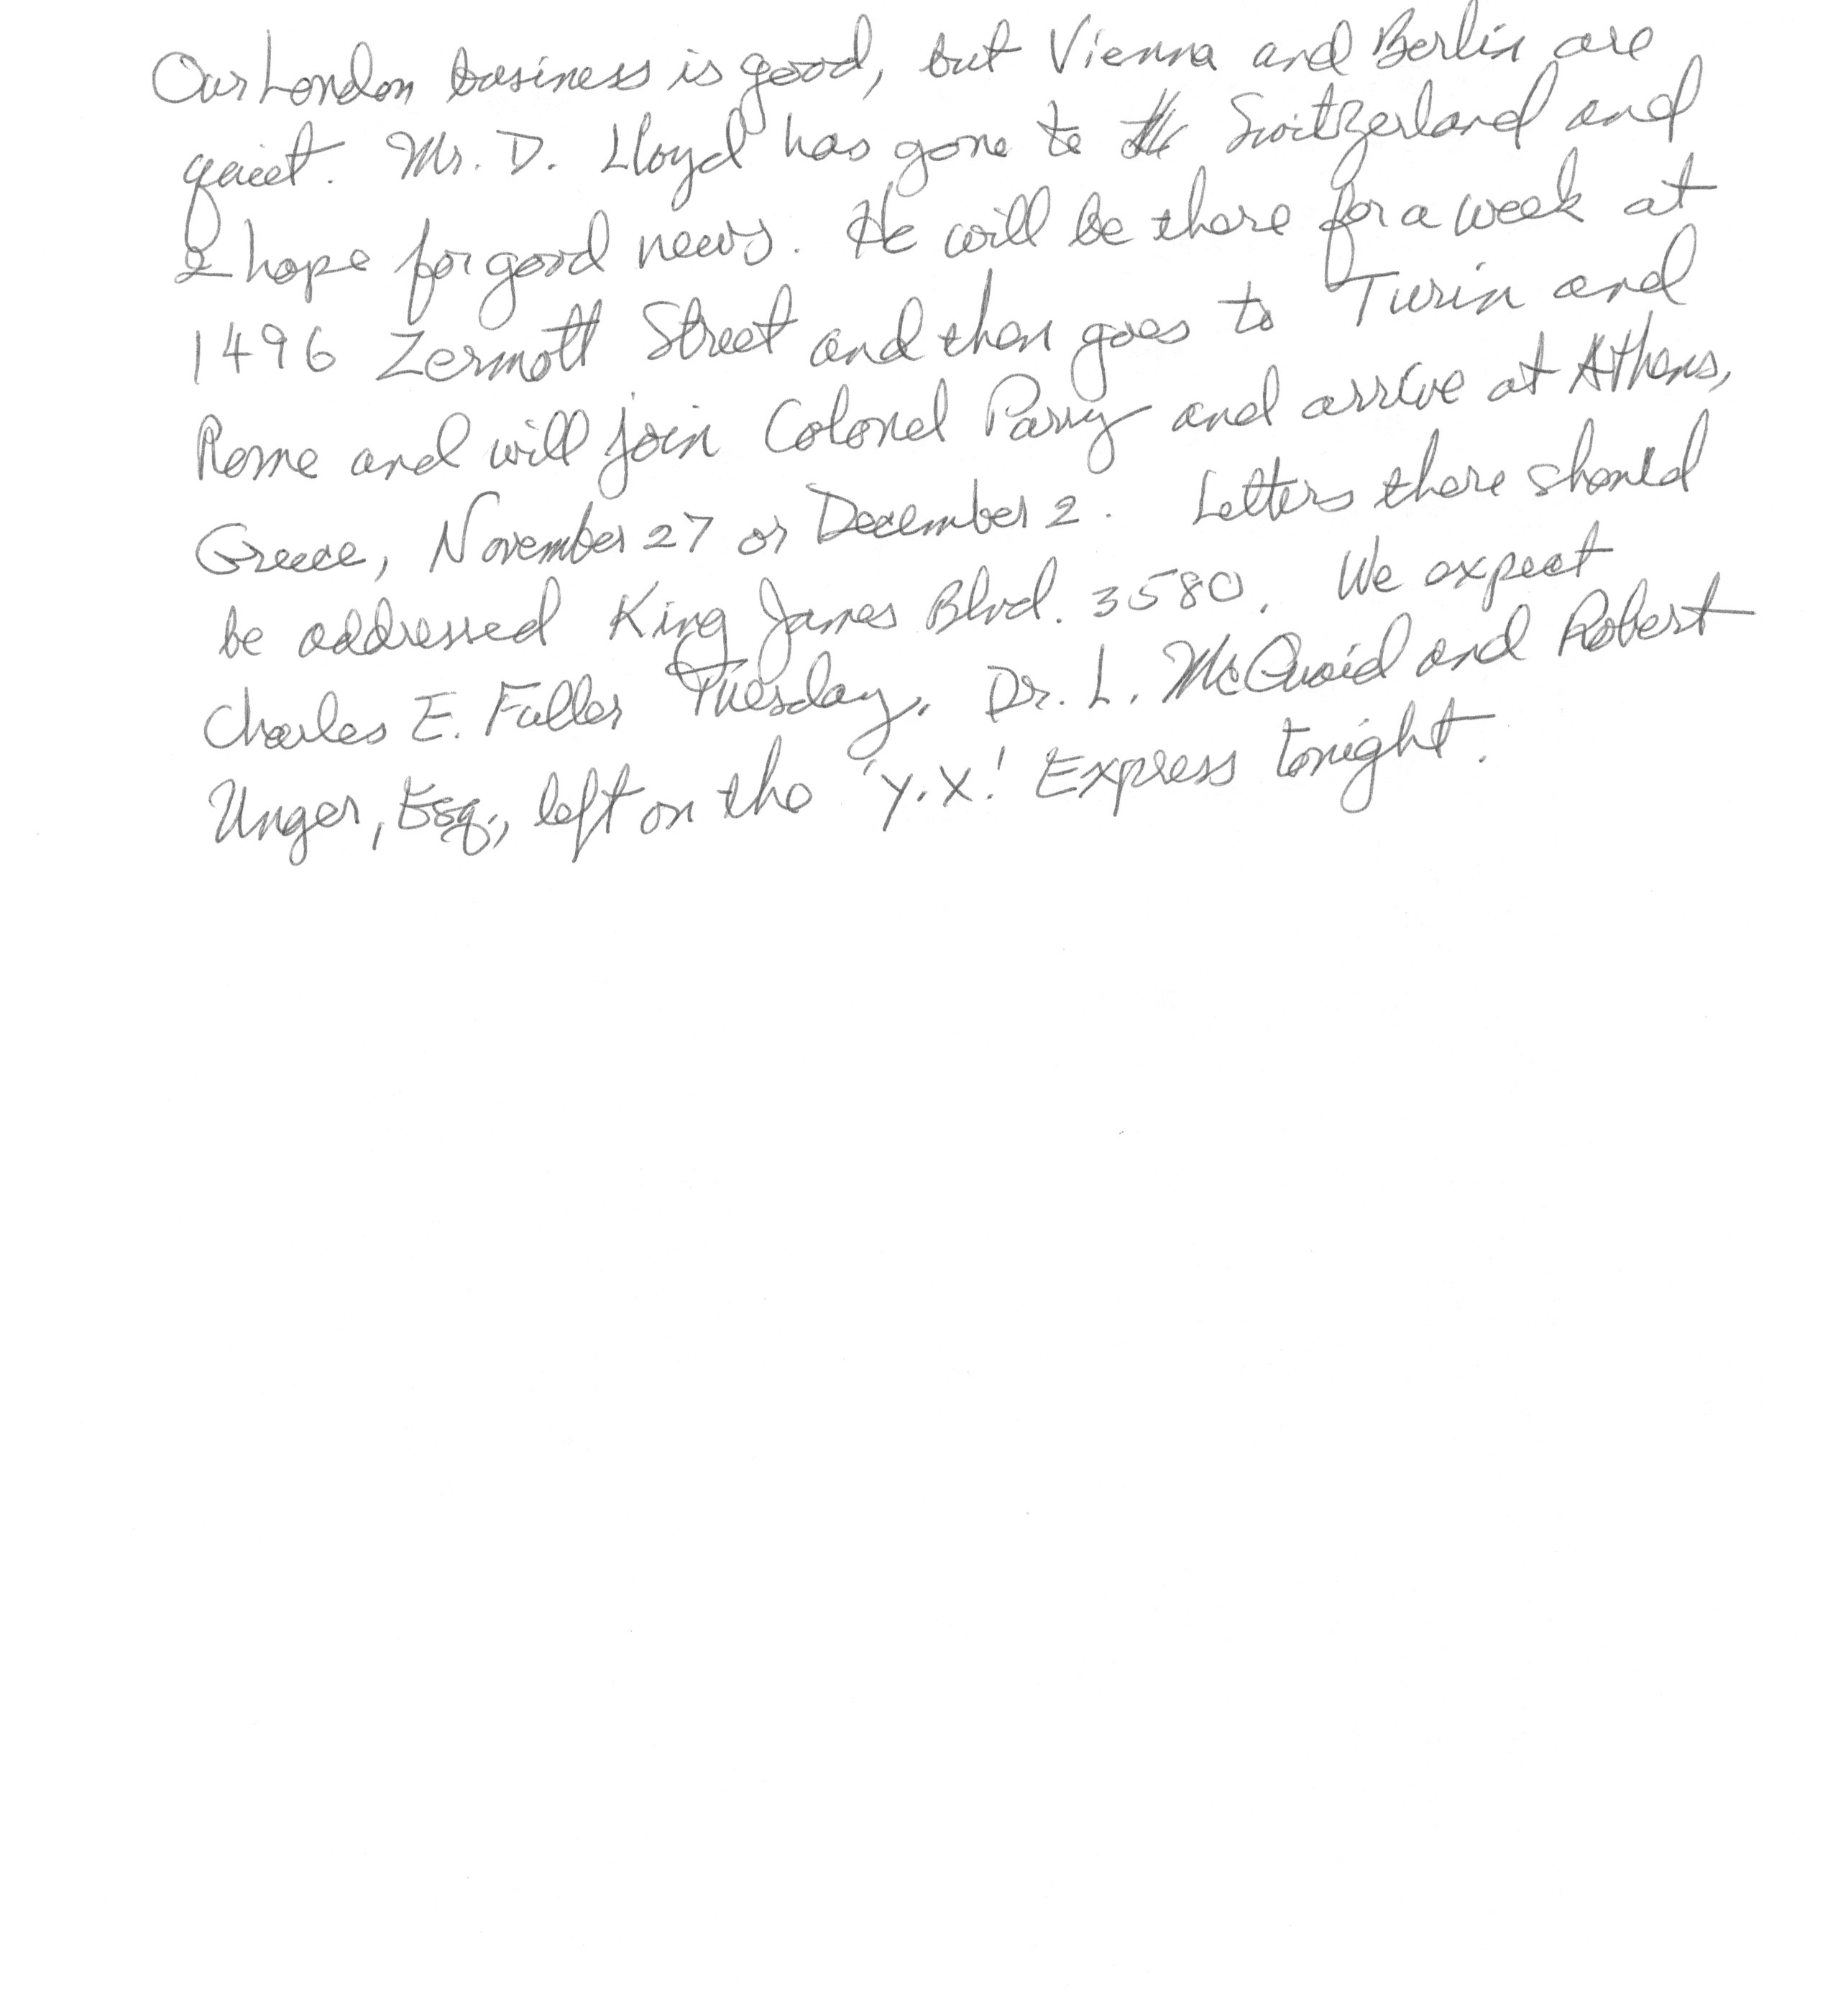 Our London business is good, but Vienna and Berlin are
quiet. Mr. D. Lloyd has gone to Switzerland and
I hope for good news. He will be there for a week at
1496 Zermott Street and then goes to Turin and
Rome and will join Colonel Parry and arrive at Athens,
Greece, November 27 or December 2. Letters there should
be addressed King James Blvd. 3580. We expect
Charles E. Fuller Tuesday. Dr. L. McQuaid and Robert
Unger, Esq., left on the 'Y.X.' Express tonight.